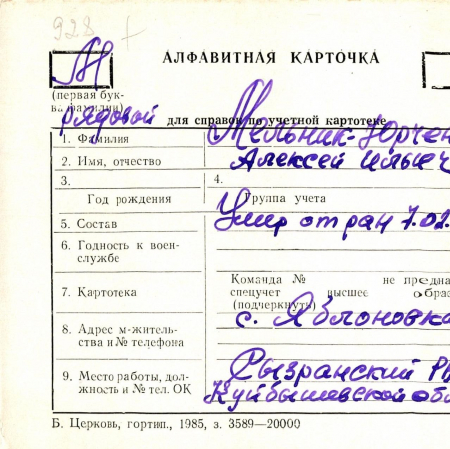 928
АЛФАВИТНАЯ КАРТОЧКА
М
(первая бук-
ва фамилии)
рядовой для справок по учетной картотеке
1. Фамилия Мельник-Юрчен
2. Имя, отчество Алексей Ильич
3. 4.
Год рождения Группа учета
5. Состав Умер от ран 7.02.
6. Годность к воен-
службе
Команда № не предна
7. Картотека спецучет высшее обра
(подчеркнуть)
с. Яблоновка
8. Адрес м-житель-
ства и № телефона
Сызранский
9. Место работы, дол-
жность и № тел. ОК
Куйбышевской обл
Б. Церковь, гортип., 1985, з. 3589—20000